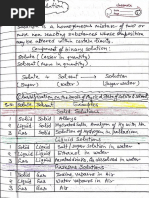 Solution is a homogeneous mixture of two or
more non reacting substances whose composition
may be altered within certain limits
Component of binary Solution:
Solute (Lesser in quantity)
Solvent (Large in quantity)
Solute + Solvent → Solution
Sugar Water Syrup
Classification on the basis of Physical State of Solute & Solvent
S.no Solute Solvent Examples
Solid Solutions
1 Solid Solid Alloys
2 Liquid Solid Hydrated Salts, Amalgam of Hg with Na
3 Gas Solid Solution of Hydrogen in palladium
Liquid Solutions
1 Solid Liquid Salt/Sugar solution in water
2 Liquid Liquid Ethanol in water
3 Gas Liquid in water
Gaseous Solutions
1 Solid Gas in Air
2 Liquid Gas Water vapours in Air
3 Gas Gas Air